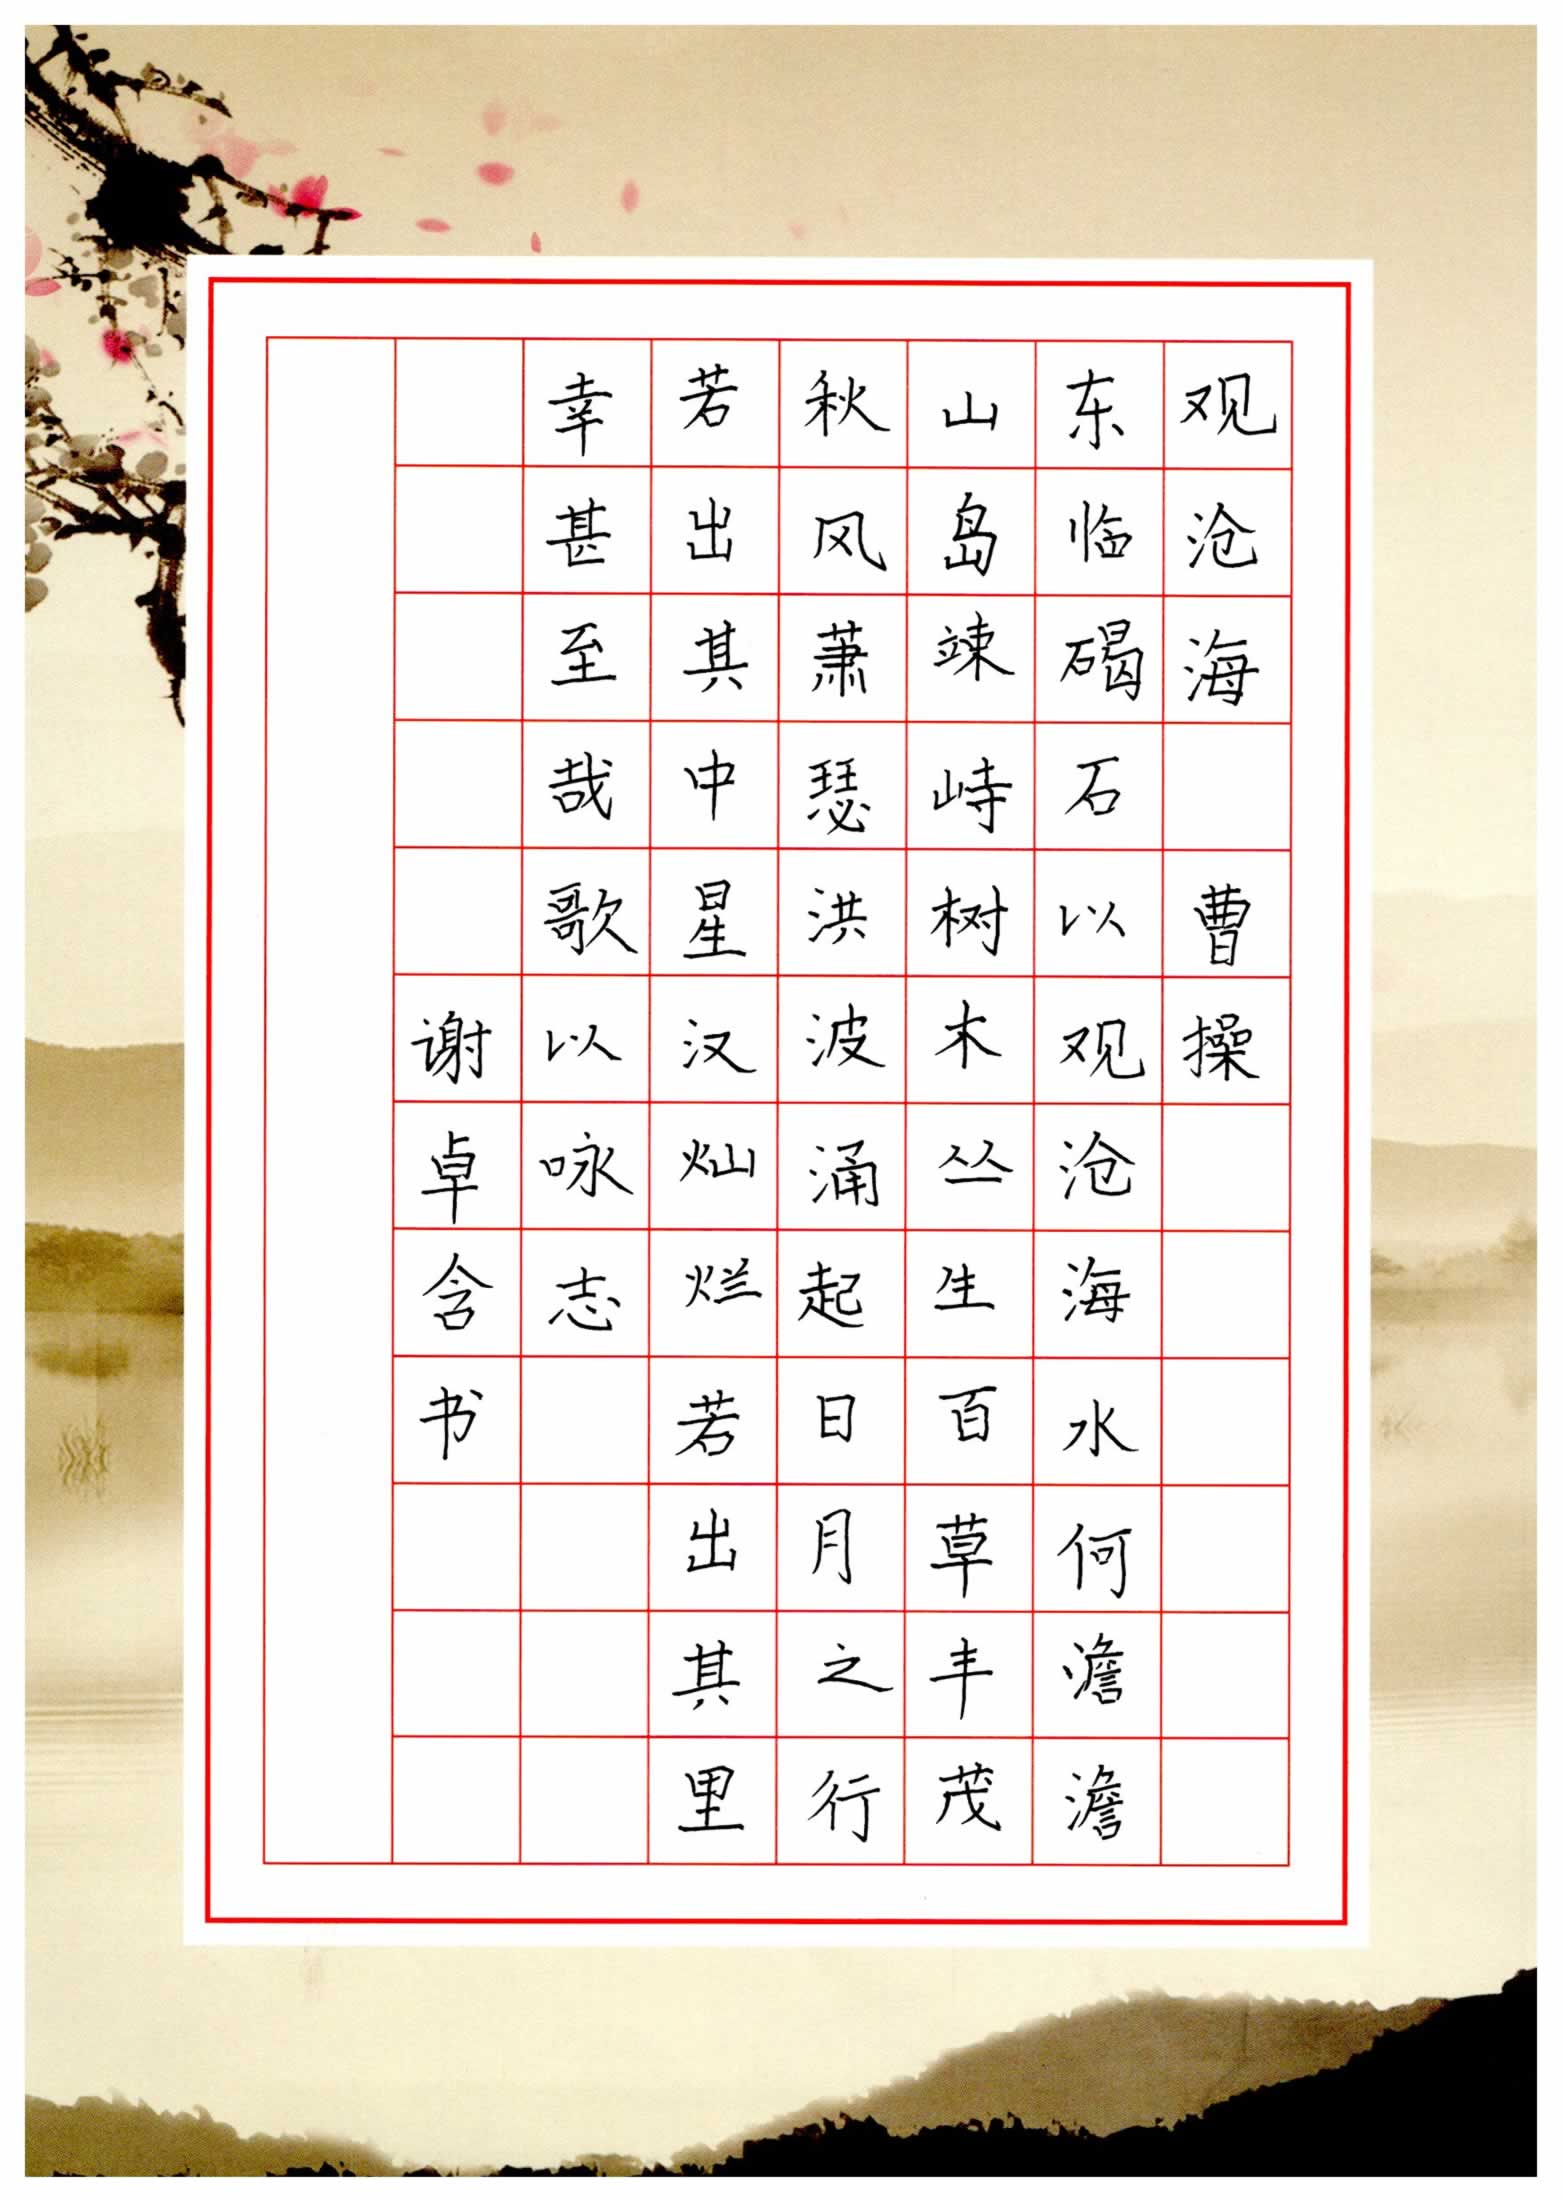 观沧海 曹操
东临碣石以观沧海水何澹澹
山岛竦峙树木丛生百草丰茂
秋风萧瑟洪波涌起日月之行
若出其中星汉灿烂若出其里
幸甚至哉歌以咏志
谢卓含书